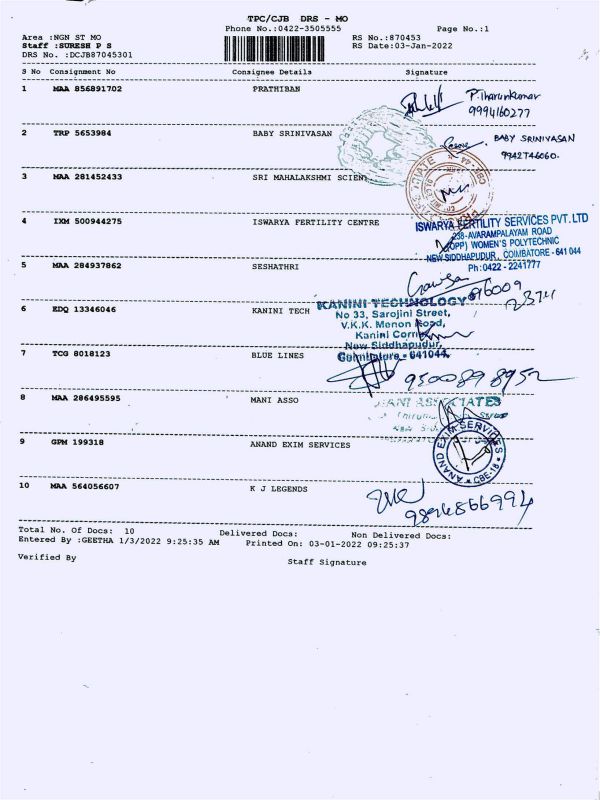 TPC/CJB DRS - MO
Phone No.:0422-3505555 Page No.:1
Area :NGN ST MO RS No.:870453
Staff :SURESH P S RS Date:03-Jan-2022
DRS No. :DCJB87045301
S No Consignment No Consignee Details Signature
1 MAA 856891702 PRATHIBAN
P.Tharunkumar
9994160277
2 TRP 5653984 BABY SRINIVASAN
BABY SRINIVASAN
9942746060.
3 MAA 281452433 SRI MAHALAKSHMI SCIEN
4 IXM 500944275 ISWARYA FERTILITY CENTRE
ISWARYA FERTILITY SERVICES PVT. LTD
238-AVARAMPALAYAM ROAD
(OPP) WOMEN'S POLYTECHNIC
NEW SIDDHAPUDUR, COIMBATORE - 641 044
Ph:0422 - 2241777
5 MAA 284937862 SESHATHRI
6 EDQ 13346046 KANINI TECH
KANINI TECHNOLOGY
No 33, Sarojini Street,
V.K.K. Menon Road,
Kanini Corner
New Siddhapudur,
Coimbatore - 641044.
7 TCG 8018123 BLUE LINES
95008 98952
8 MAA 286495595 MANI ASSO
MANI ASSOCIATES
9 GPM 199318 ANAND EXIM SERVICES
ANAND EXIM SERVICES
CBE-18
10 MAA 564056607 K J LEGENDS
9894866994
Total No. Of Docs: 10 Delivered Docs: Non Delivered Docs:
Entered By :GEETHA 1/3/2022 9:25:35 AM Printed On: 03-01-2022 09:25:37
Verified By Staff Signature